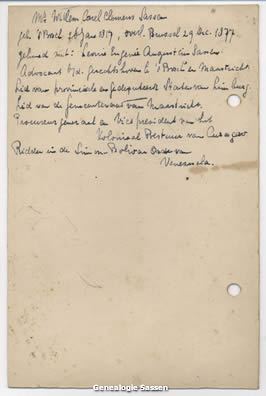 Mr Willem Carel Clemens Sassen
geb. 's Bosch Jan 1817, overl. Brussel 29 Dec. 1877
gehuwd met: Eugenie Augustine Sassen
Advocaat bij de gerechtshoven te 's Bosch en Maastricht
Lid van provinciale en gedeputeerde Staten van Limburg
Lid van de gemeenteraad van Maastricht
Procureur generaal en Vice president van het
Koloniaal Bestuur van Curaçao
Ridder in de Simon Bolivar Orde van
Venezuela.
Genealogie Sassen